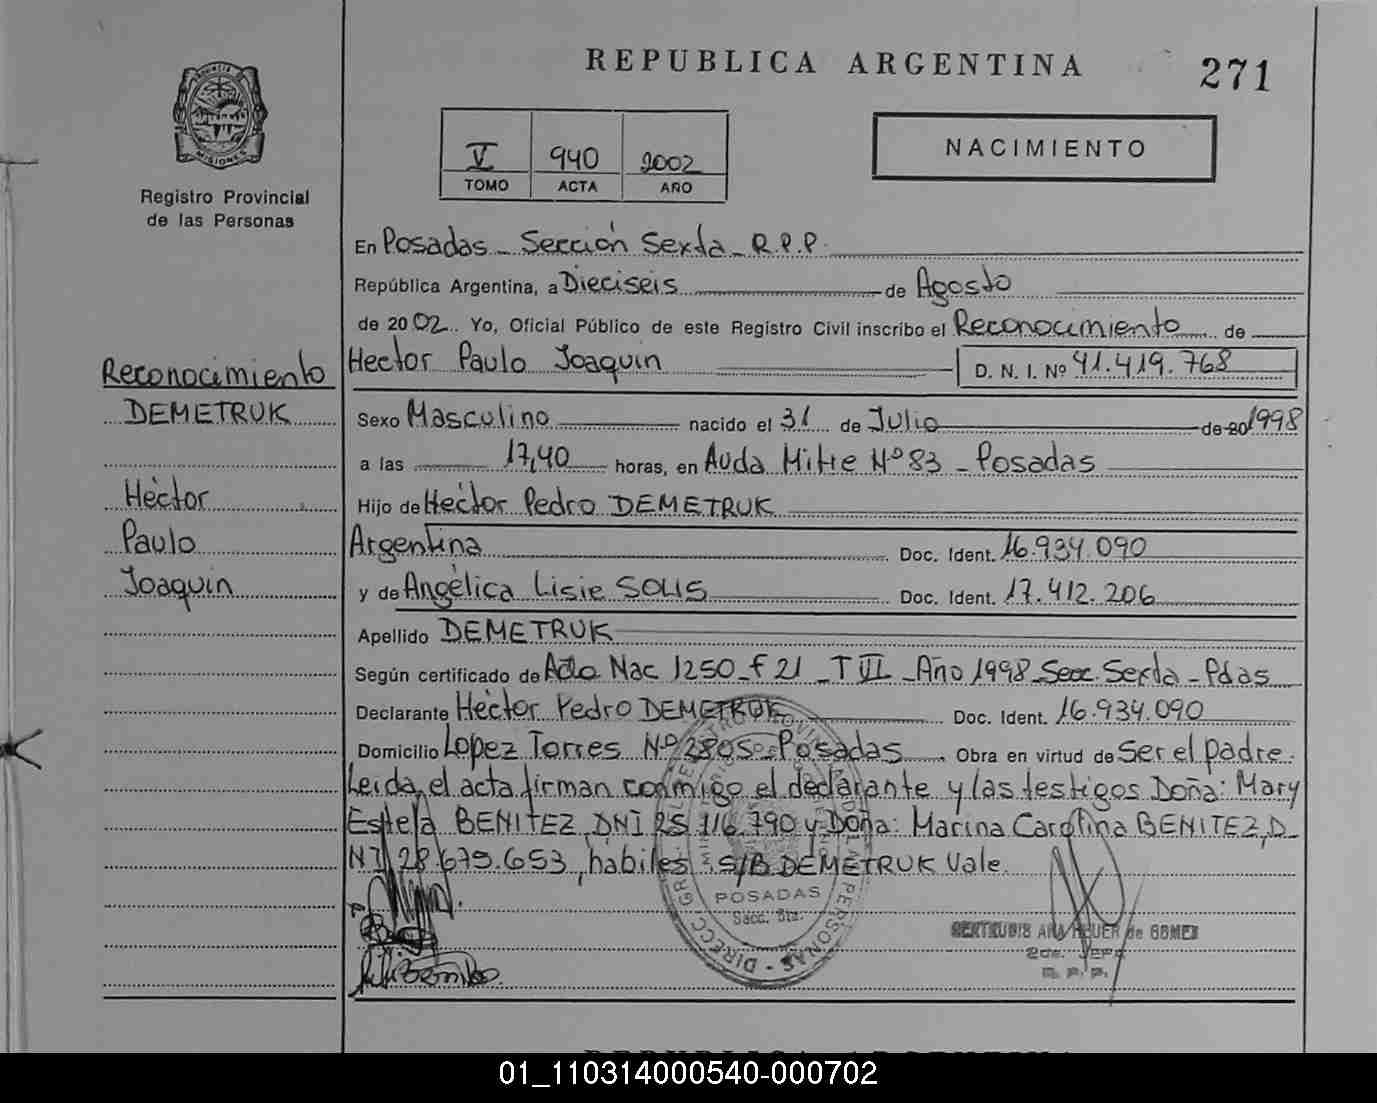 REPUBLICA ARGENTINA
271
PROVINCIA DE MISIONES
Registro Provincial
de las Personas
V 940 2002
TOMO ACTA AÑO
NACIMIENTO
En Posadas - Sección Sexta - R.P.P.
República Argentina, a Dieciseis de Agosto
de 2002. Yo, Oficial Público de este Registro Civil inscribo el Reconocimiento de
Hector Paulo Joaquin D. N. I. Nº 41.419.768
Reconocimiento
DEMETRUK
Héctor
Paulo
Joaquin
Sexo Masculino nacido el 31 de Julio de 20 1998
a las 17,40 horas, en Avda Mitre Nº 83 - Posadas
Hijo de Héctor Pedro DEMETRUK
Argentina Doc. Ident. 16.934.090
y de Angélica Lisie SOLIS Doc. Ident. 17.412.206
Apellido DEMETRUK
Según certificado de Acta Nac 1250 - F 21 - T VII - Año 1998 - Secc. Sexta - Pdas
Declarante Héctor Pedro DEMETRUK Doc. Ident. 16.934.090
Domicilio Lopez Torres Nº 2805 - Posadas Obra en virtud de Ser el padre.
Leida el acta firman conmigo el declarante y las testigos Doña: Mary
Estela BENITEZ, DNI 25.116.790 y Doña: Marina Carolina BENITEZ, D
NI 28.675.653, hábiles. S/B DEMETRUK Vale.
POSADAS
Secc. 6ta.
GERTRUDIS ANA HEUER de GOMEZ
2da. JEFA
R. P. P.
REPUBLICA ARGENTINA
01_110314000540-000702